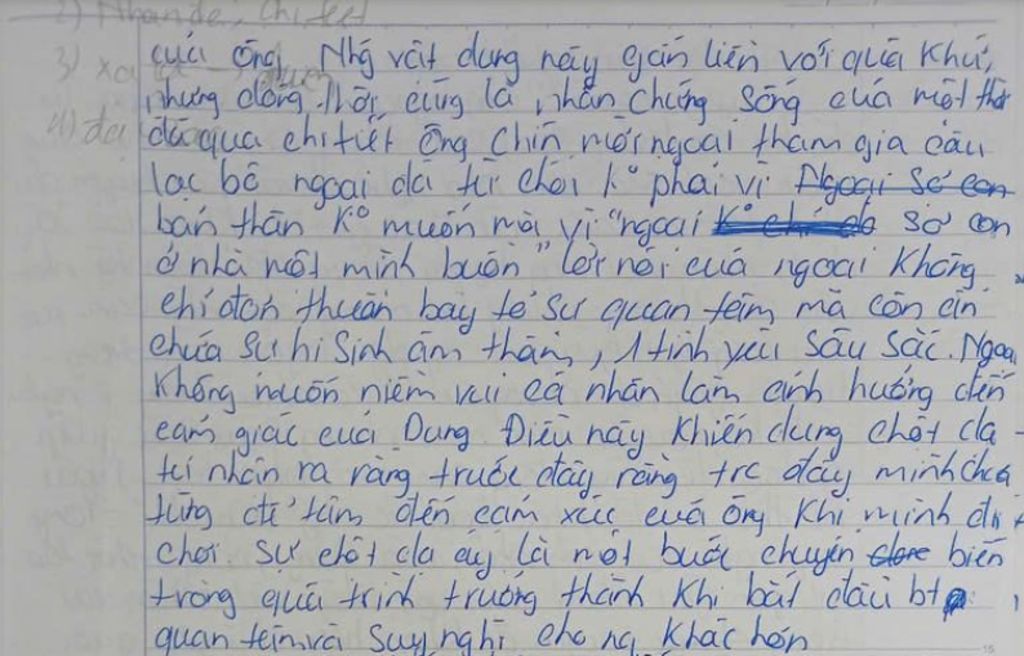 2) Nhan đề, Chi tiết
của ông. Nhg vật dụng này gắn liền với quá khứ,
3)
nhưng đồng thời cũng là nhân chứng sống của một thời
4)
đã qua chi tiết ông Chín mời ngoại tham gia câu
lạc bộ ngoại đã từ chối k° phải vì Ngoại sợ con
bản thân k° muốn mà vì "ngoại sợ con
ở nhà một mình buồn" lời nói của ngoại Không
chỉ đơn thuần bày tỏ sự quan tâm mà còn ẩn
chứa sự hi sinh âm thầm, 1 tình yêu sâu sắc. Ngoại
không muốn niềm vui cá nhân làm ảnh hưởng đến
cảm giác của Dung Điều này khiến dung chột dạ
tự nhận ra rằng trước đây rằng trc đây mình chưa
từng để tâm đến cảm xúc của ông khi mình đi
chơi sự chột dạ ấy là một bước chuyển biến
trong quá trình trưởng thành khi bắt đầu bt
quan tâm và suy nghĩ cho ng khác hơn